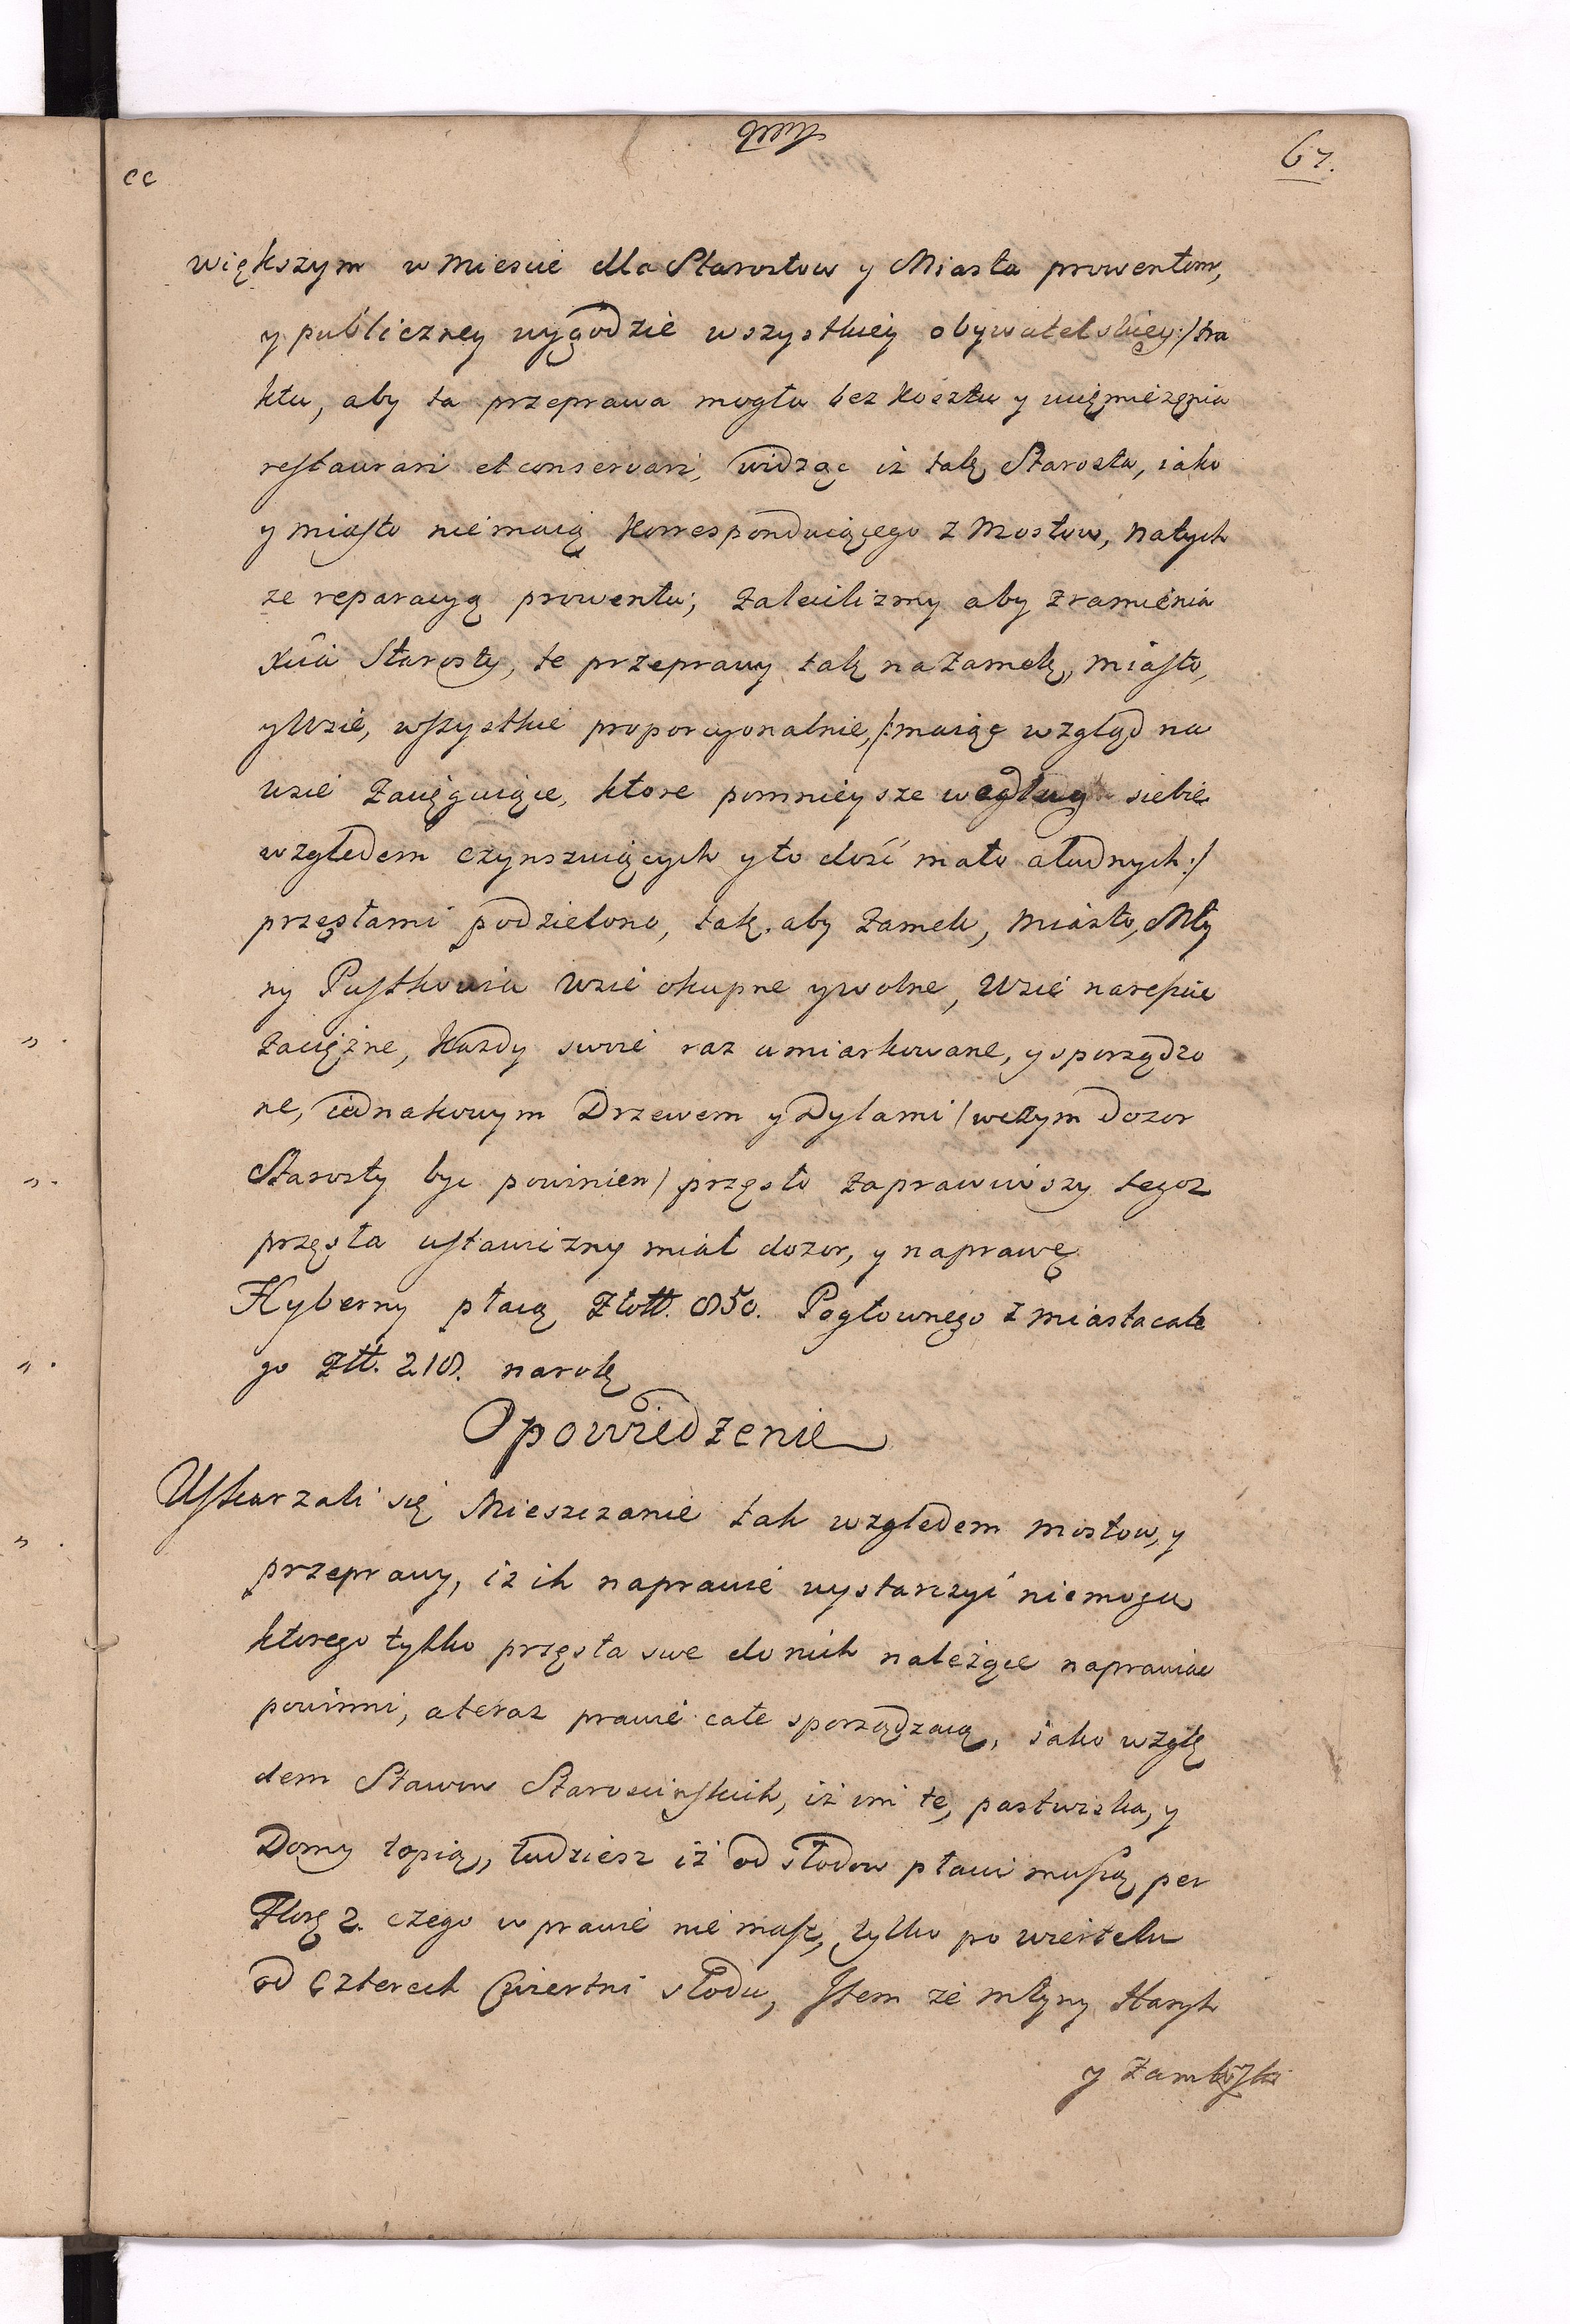 67.
cc
większym w Miescie dla Starostow y Miasta prowentom,
y publiczney wygodzie wszystkiey obywatelskiey :/ tra
ktu, aby ta przeprawa mogła bez kosztu y uciemiezęnia
restaurari et conservari, widząc iż tak Starosta, iako
y miasto nie maią korrespönduiącego z Mostow, na tych
ze reparacyą prowentu; zalecilismy aby z ramienia
Xcia Starosty, te przeprawy tak na Zamek, miasto,
y Wsie, wszystkie proporcyonalnie, /: maiąc wzgląd na
wsie zacięguiące, ktore pomnieysze według siebie
względem czynszuiących y to dość mało a ludnych :/
przęsłami podzielono, tak aby Zamek, miasto, Mły
ny Pustkowia Wsie okupne y wolne, Wsie nareszcie
zaciężne, Każdy swoie raz umiarkowane, y sporządzo
ne, iednakowym Drzewem y Dylami / w czym dozor
Starosty byc powinien / przęsło zaprawiwszy tegoż
przęsła ustawiczny miał dozor, y naprawę
Hyberny płacą Złott. 850. Pogłownego z miasta całe
go Złt. 218. na rok
Opowiedzenie
Uskarzali się Mieszczanie tak względem mostow, y
przeprawy, iz ich naprawie wystarczyć niemogą
ktorego tylko przęsła swe do nich należące naprawiac
powinni, a teraz prawie całe sporządzaią, iako wzglę
dem Stawow Starosciński​ch, iż im te, pastwiska, y
Domy topią, tudziesz iż od słodow płacić muszą per
Flor 2. czego w prawie nie masz, tylko po wiertelu
od czterech Cwiertni słodu, Item że młyny Starych
y Zamkoyski